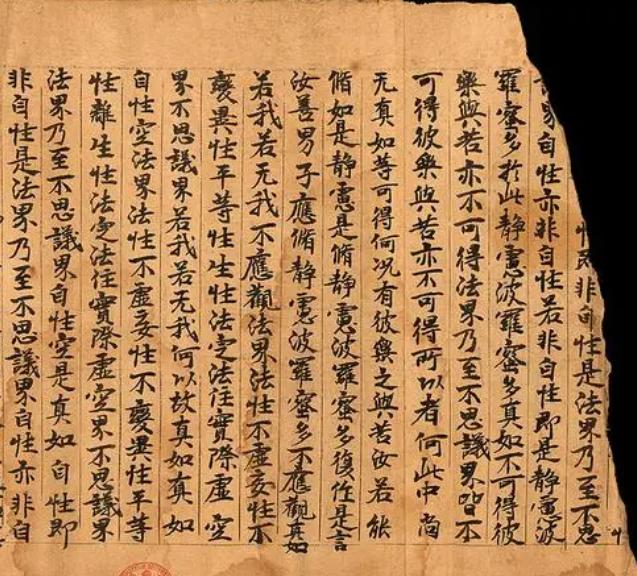 性即非自性是法界乃至不思
界自性亦非自性若非自性即是靜慮波
羅蜜多於此靜慮波羅蜜多真如不可得彼
樂與苦亦不可得法界乃至不思議界皆不
可得彼樂與苦亦不可得所以者何此中尚
无真如等可得何況有彼樂之與苦汝若能
脩如是靜慮是脩靜慮波羅蜜多復作是言
汝善男子應脩靜慮波羅蜜多不應觀真如
若我若无我不應觀法界法性不虛妄性不
變異性平等性生性法定法住實際虛空
界不思議界若我若无我何以故真如真如
自性空法界法性不虛妄性不變異性平等
性離生性法定法住實際虛空界不思議界
法界乃至不思議界自性空是真如自性即
非自性是法界乃至不思議界自性亦非自